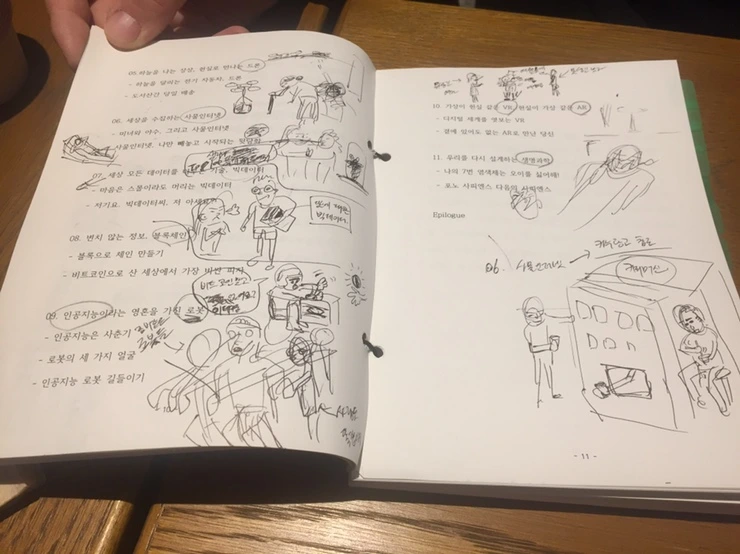 05. 하늘을 나는 상상, 현실로 만나는 드론
- 하늘을 달리는 전기 자동차, 드론
- 도서산간 당일 배송
06. 세상을 수집하는 사물인터넷
- 미녀와 야수, 그리고 사물인터넷
사물인터넷, 나만 빼놓고 시작되는 뒷담화
07. 세상 모든 데이터를 기술, 빅데이터
- 마음은 스몰이라도 머리는 빅데이터
- 저기요. 빅데이터씨, 저 아세요
08. 변치 않는 정보, 블록체인
- 블록으로 체인 만들기
- 비트코인으로 산 세상에서 가장 비싼 피자
비트코인
09. 인공지능이라는 영혼을 가진 로봇
- 인공지능은 사춘기
- 로봇의 세 가지 얼굴
- 인공지능 로봇 길들이기
10. 가상이 현실 같은 VR 현실이 가상 같은 AR
- 디지털 세계를 엿보는 VR
- 곁에 있어도 없는 AR로 만난 당신
11. 우리를 다시 설계하는 생명과학
- 나의 7번 염색체는 오이를 싫어해!
- 호모 사피엔스 다음의 사피엔스
Epilogue
06.
- 11 -